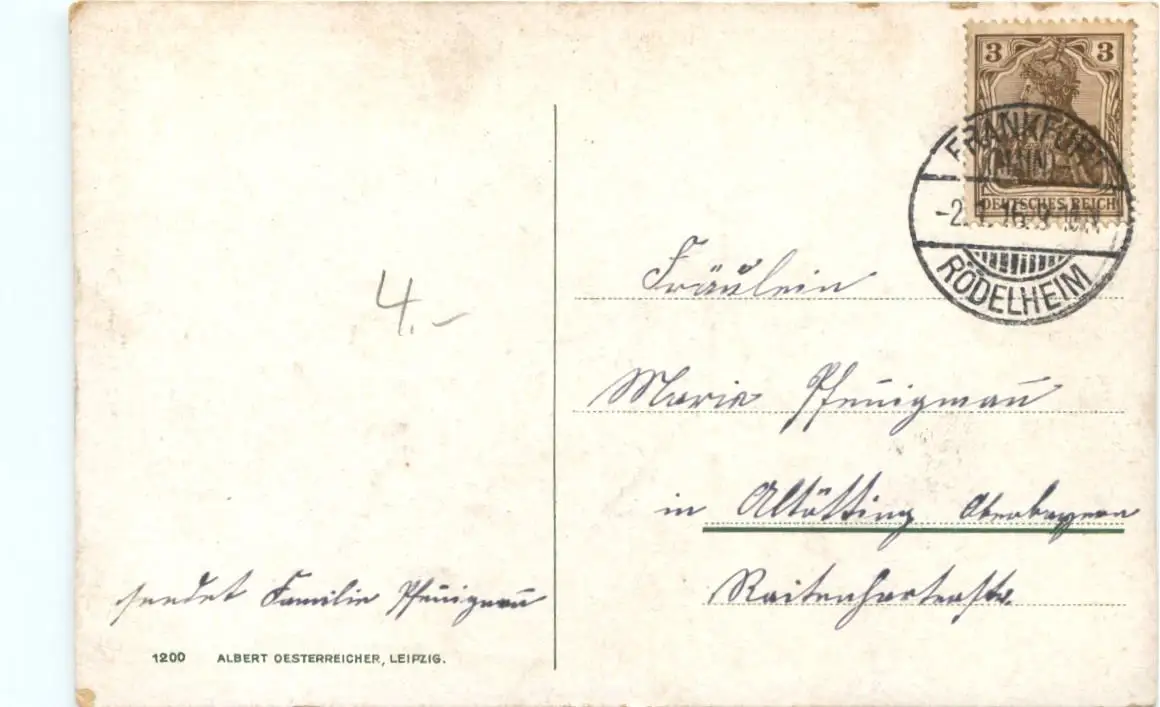 3 3
DEUTSCHES REICH
FRANKFURT
(MAIN)-
-2.1.16.9-10.V.
RÖDELHEIM
4.-
Fräulein
Marie Pfeñigmañ
in Altötting Oberbayern
Raitenharterstr.
sendet Familie Pfeñigmañ
1200 ALBERT OESTERREICHER, LEIPZIG.